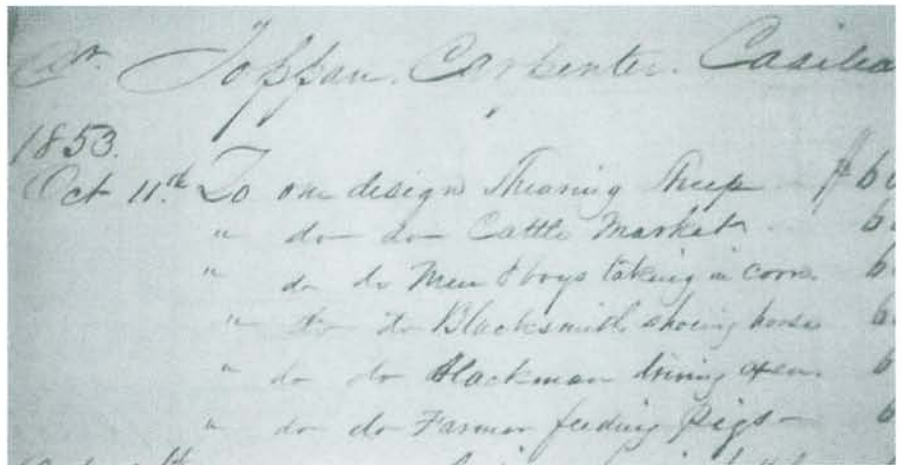 Dr. Toppan. Carpenter. Casilea
1853.
Oct 11.th To one design Shearing Sheep $ 6
" do do Cattle Market. 6
" do do Men & boys taking in corn. 6
" do do Blacksmith shoeing horse 6
" do do Blackman driving oxen. 6
" do do Farmer feeding Pigs — 6